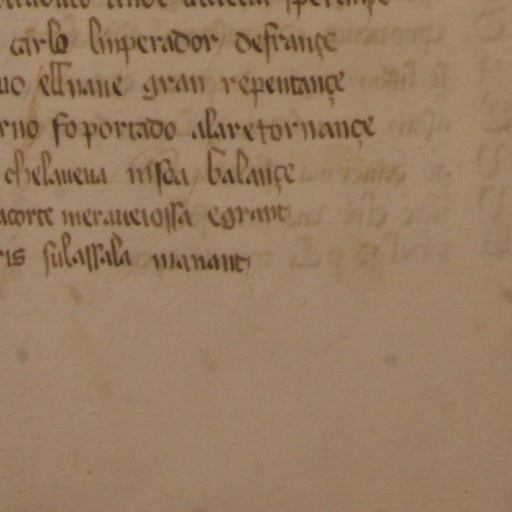 carlo linperador defrançe
ellnaue gran repentançe
rno fo portado alaretornançe
chelaueua missa balançe
acorte meraueiossa egrant
ris sulassala manant